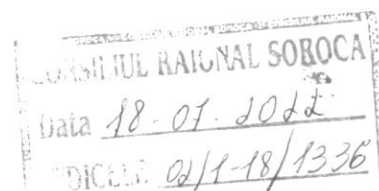 CONSILIUL RAIONAL SOROCA
Data 18.07.2022
INDICELE 02/1-18/1336